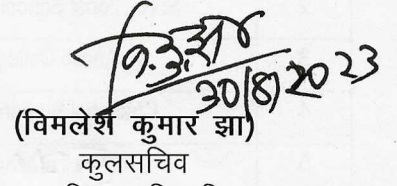 वि.कु.झा
30/8/2023
(विमलेश कुमार झा)
कुलसचिव